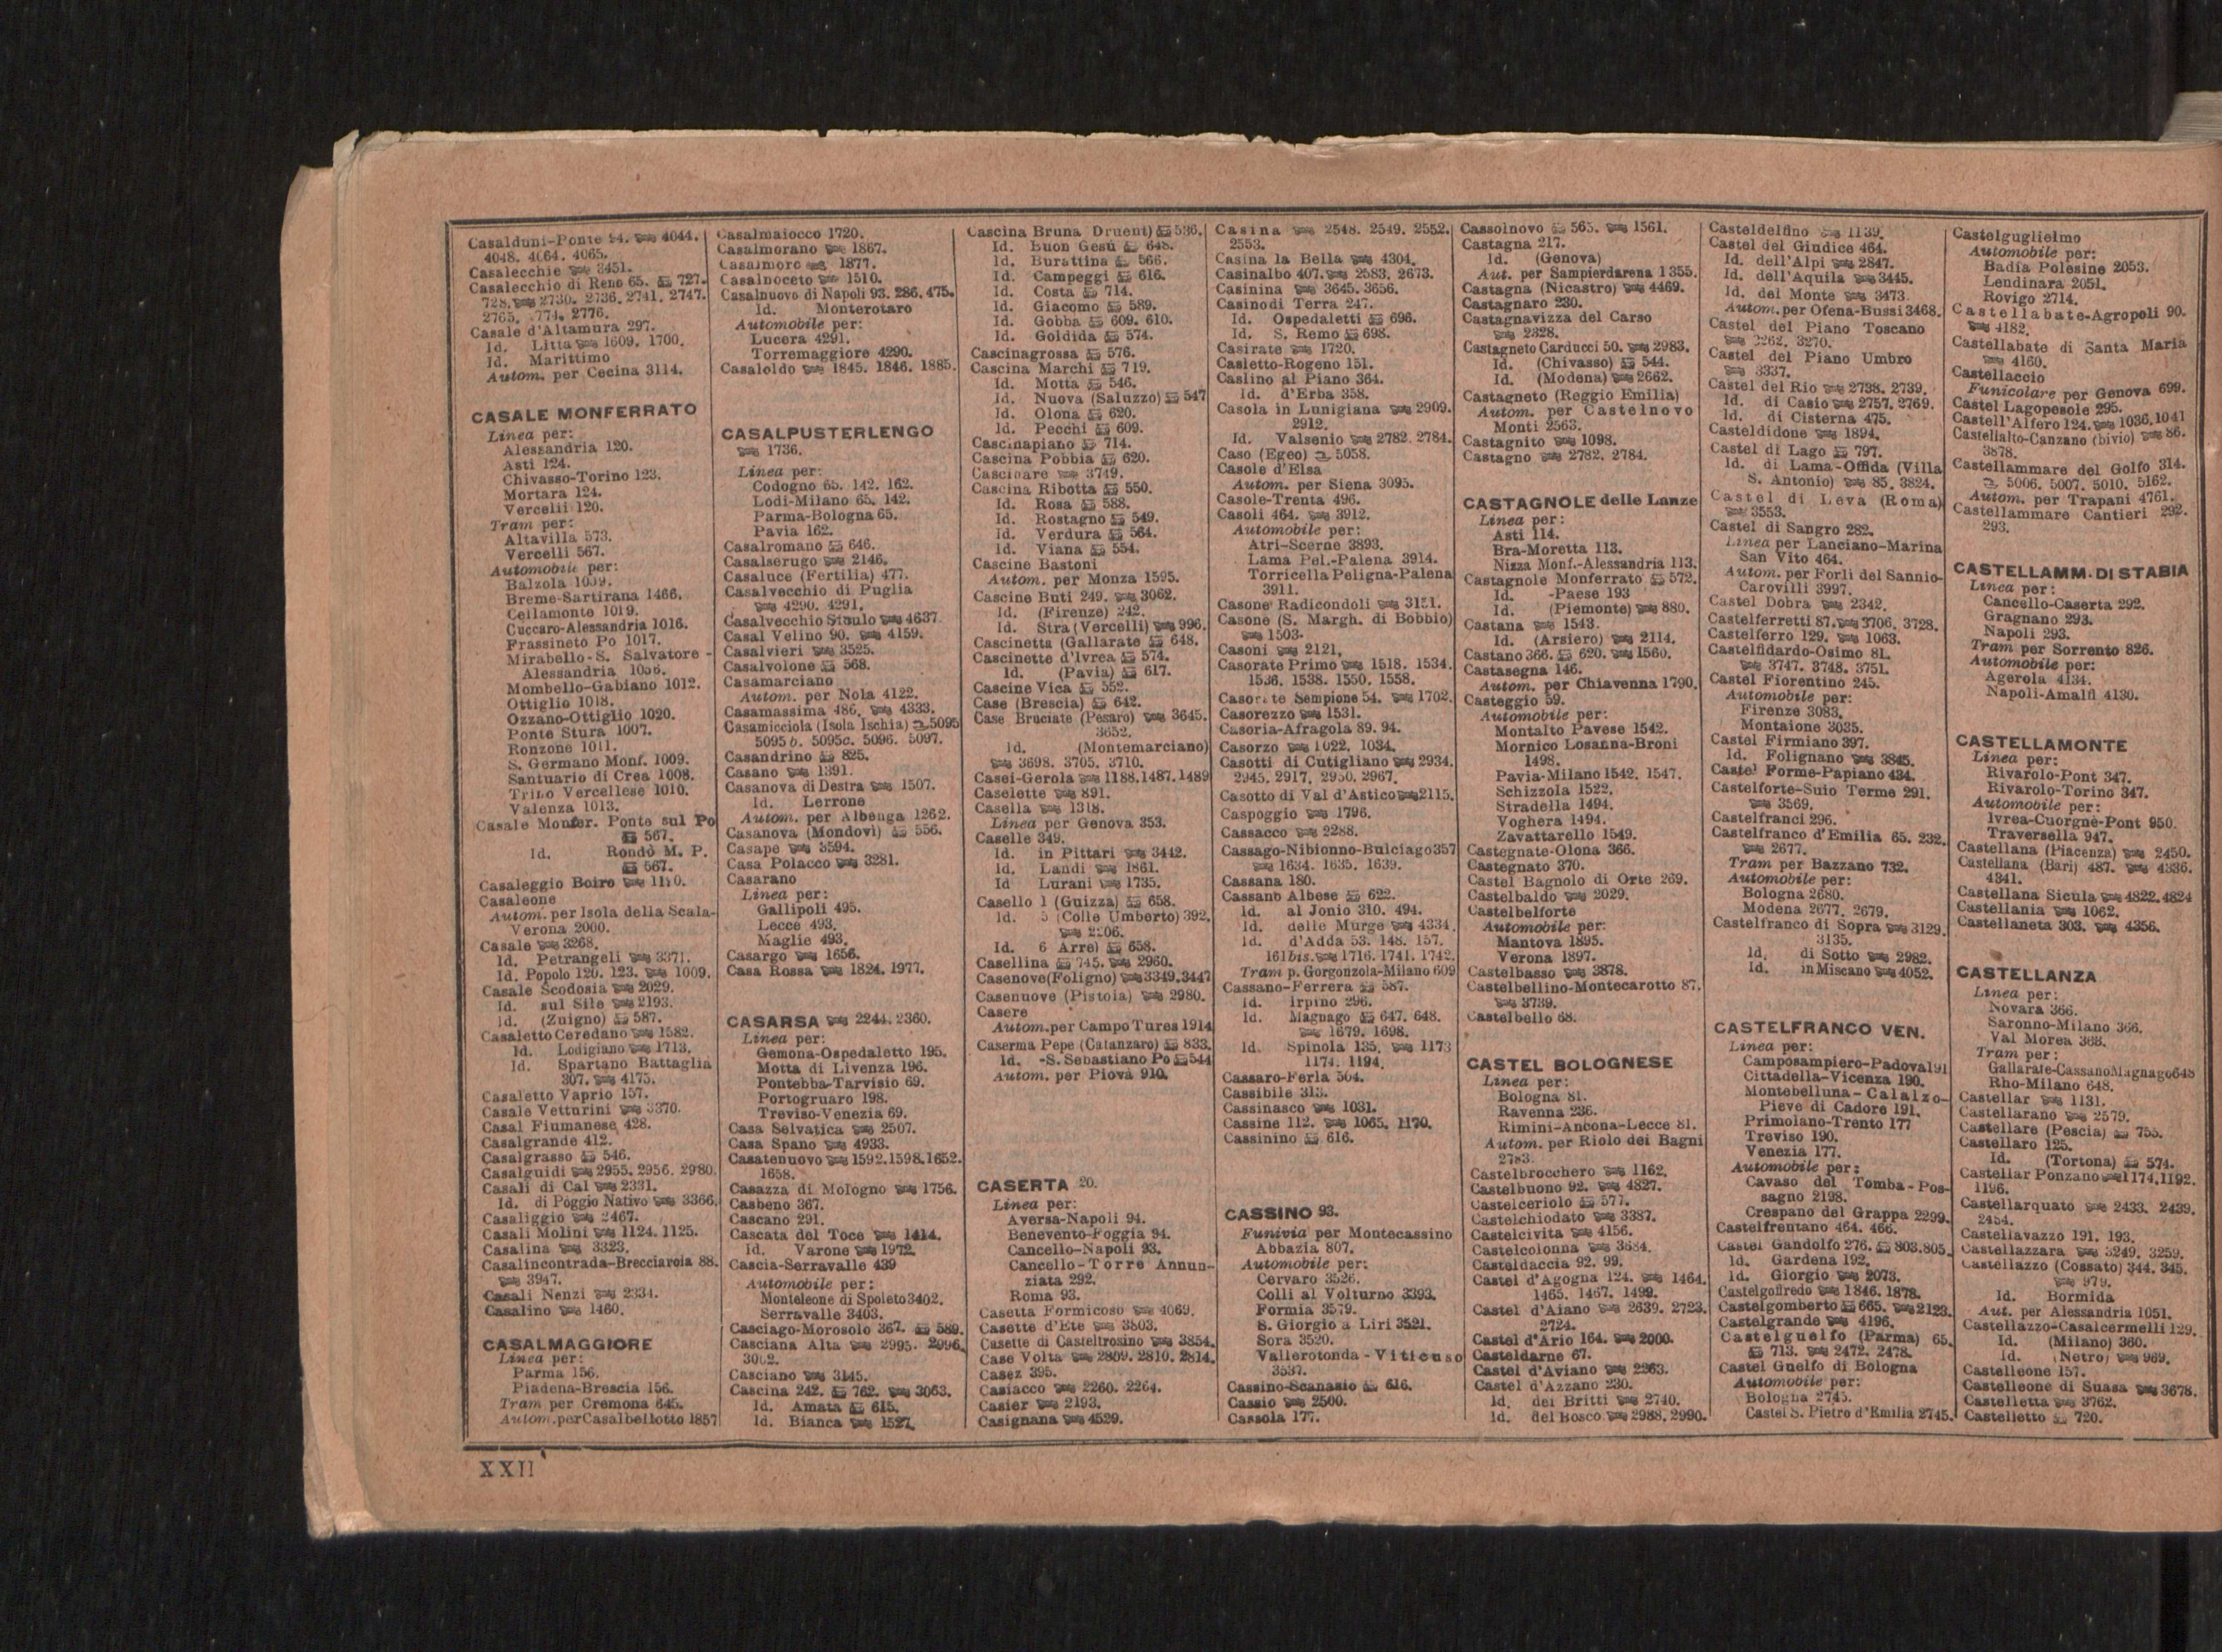 Casalduni-Ponte 94. 4044.
4048. 4064. 4065.
Casalecchie 3451.
Casalecchio di Reno 65. 727.
728. 2730. 2736. 2741. 2747.
2765. 2776.
Casale d'Altamura 297.
Id. Litta 1609. 1700.
Id. Marittimo
Autom. per Cecina 3114.
CASALE MONFERRATO
Linea per:
Alessandria 120.
Asti 124.
Chivasso-Torino 123.
Mortara 124.
Vercelli 120.
Tram per:
Altavilla 573.
Vercelli 567.
Automobile per:
Balzola 1009.
Breme-Sartirana 1466.
Cellamonte 1019.
Cuccaro-Alessandria 1016.
Frassineto Po 1017.
Mirabello-S. Salvatore-
Alessandria 1056.
Mombello-Gabiano 1012.
Ottiglio 1018.
Ozzano-Ottiglio 1020.
Ponte Stura 1007.
Ronzone 1011.
S. Germano Monf. 1009.
Santuario di Crea 1008.
Trino Vercellese 1010.
Valenza 1013.
Casale Monfer. Ponte sul Po
567.
Id. Rondò M. P.
567.
Casaleggio Boiro 1110.
Casaleone
Autom. per Isola della Scala-
Verona 2000.
Casale 3268.
Id. Petrangeli 3371.
Id. Popolo 120. 123. 1009.
Casale Scodosia 2029.
Id. sul Sile 2193.
Id. (Zuigno) 587.
Casaletto Ceredano 1582.
Id. Lodigiano 1713.
Id. Spartano Battaglia
307. 4175.
Casaletto Vaprio 157.
Casale Vetturini 3370.
Casal Fiumanese 428.
Casalgrande 412.
Casalgrasso 546.
Casalguidi 2955. 2956. 2980.
Casali di Cal 2331.
Id. di Poggio Nativo 3366.
Casaliggio 2467.
Casali Molini 1124. 1125.
Casalina 3323.
Casalincontrada-Brecciarola 88.
3947.
Casali Nenzi 2334.
Casalino 1460.
CASALMAGGIORE
Linea per:
Parma 156.
Piadena-Brescia 156.
Tram per Cremona 645.
Autom. per Casalbellotto 1857
Casalmaiocco 1720.
Casalmorano 1867.
Casalmoro 1877.
Casalnoceto 1510.
Casalnuovo di Napoli 93. 286. 475.
Id. Monterotaro
Automobile per:
Lucera 4291.
Torremaggiore 4290.
Casaloldo 1845. 1846. 1885.
CASALPUSTERLENGO
1736.
Linea per:
Codogno 65. 142. 162.
Lodi-Milano 65. 142.
Parma-Bologna 65.
Pavia 162.
Casalromano 646.
Casalserugo 2146.
Casaluce (Fertilia) 477.
Casalvecchio di Puglia
4290. 4291.
Casalvecchio Siculo 4637
Casal Velino 90. 4159.
Casalvieri 3525.
Casalvolone 568.
Casamarciano
Autom. per Nola 4122.
Casamassima 486. 4333.
Casamicciola (Isola Ischia) 5095
5095 b. 5095c. 5096. 5097.
Casandrino 825.
Casano 1391.
Casanova di Destra 1507.
Id. Lerrone
Autom. per Albenga 1262.
Casanova (Mondovì) 556.
Casape 3594.
Casa Polacco 3281.
Casarano
Linea per:
Gallipoli 495.
Lecce 493.
Maglie 493.
Casargo 1656.
Casa Rossa 1824. 1977.
CASARSA 2244. 2360.
Linea per:
Gemona-Ospedaletto 195.
Motta di Livenza 196.
Pontebba-Tarvisio 69.
Portogruaro 198.
Treviso-Venezia 69.
Casa Selvatica 2507.
Casa Spano 4933.
Casatenuovo 1592. 1598. 1652.
1658.
Casazza di Mologno 1756.
Casbeno 367.
Cascano 291.
Cascata del Toce 1414.
Id. Varone 1972.
Cascia-Serravalle 439
Automobile per:
Monteleone di Spoleto 3402.
Serravalle 3403.
Casciago-Morosolo 367. 589.
Casciana Alta 2995. 2996.
3062.
Casciano 3145.
Cascina 242. 762. 3063.
Id. Amata 615.
Id. Bianca 1527.
Cascina Bruna Druent) 536.
Id. Buon Gesù 648.
Id. Burattina 566.
Id. Campeggi 616.
Id. Costa 714.
Id. Giacomo 589.
Id. Gobba 609. 610.
Id. Goldida 574.
Cascinagrossa 576.
Cascina Marchi 719.
Id. Motta 546.
Id. Nuova (Saluzzo) 547
Id. Olona 620.
Id. Pecchi 609.
Cascinapiano 714.
Cascina Pobbia 620.
Cascinare 3749.
Cascina Ribotta 550.
Id. Rosa 588.
Id. Rostagno 549.
Id. Verdura 564.
Id. Viana 554.
Cascine Bastoni
Autom. per Monza 1595.
Cascine Buti 249. 3062.
Id. (Firenze) 242.
Id. Stra (Vercelli) 996.
Cascinetta (Gallarate 648.
Cascinette d'Ivrea 574.
Id. (Pavia) 617.
Cascine Vica 552.
Case (Brescia) 642.
Case Bruciate (Pesaro) 3645.
3652.
Id. (Montemarciano)
3698. 3705. 3710.
Casei-Gerola 1188. 1487. 1489
Caselette 891.
Casella 1318.
Linea per Genova 353.
Caselle 349.
Id. in Pittari 3442.
Id. Landi 1861.
Id Lurani 1735.
Casello 1 (Guizza) 658.
Id. 5 (Colle Umberto) 392.
2206.
Id. 6 Arre) 658.
Casellina 745. 2960.
Casenove(Foligno) 3349. 3447
Casenuove (Pistoia) 2980.
Casere
Autom. per Campo Tures 1914
Caserma Pepe (Catanzaro) 833.
Id. -S. Sebastiano Po 544
Autom. per Piovà 910.
CASERTA 20.
Linea per:
Aversa-Napoli 94.
Benevento-Foggia 94.
Cancello-Napoli 93.
Cancello-Torre Annun-
ziata 292.
Roma 93.
Casetta Formicoso 4069.
Casette d'Ete 3803.
Casette di Casteltrosino 3854.
Case Volta 2809. 2810. 2814.
Casez 395.
Casiacco 2260. 2264.
Casier 2193.
Casignana 4529.
Casina 2548. 2549. 2552.
2553.
Casina la Bella 4304.
Casinalbo 407. 2583. 2673.
Casinina 3645. 3656.
Casinodi Terra 247.
Id. Ospedaletti 696.
Id. S. Remo 698.
Casirate 1720.
Casletto-Rogeno 151.
Caslino al Piano 364.
Id. d'Erba 358.
Casola in Lunigiana 2909.
2912.
Id. Valsenio 2782. 2784.
Caso (Egeo) 5058.
Casole d'Elsa
Autom. per Siena 3095.
Casole-Trenta 496.
Casoli 464. 3912.
Automobile per:
Atri-Scerne 3893.
Lama Pel.-Palena 3914.
Torricella Peligna-Palena
3911.
Casone Radicondoli 3151.
Casone (S. Margh. di Bobbio)
1503.
Casoni 2121.
Casorate Primo 1518. 1534.
1536. 1538. 1550. 1558.
Casorate Sempione 54. 1702.
Casorezzo 1531.
Casoria-Afragola 89. 94.
Casorzo 1022. 1034.
Casotti di Cutigliano 2934.
2945. 2917. 2950. 2967.
Casotto di Val d'Astico 2115.
Caspoggio 1796.
Cassacco 2288.
Cassago-Nibionno-Bulciago 357
1634. 1635. 1639.
Cassana 180.
Cassano Albese 622.
Id. al Jonio 310. 494.
Id. delle Murge 4334.
Id. d'Adda 53. 148. 157.
161bis. 1716. 1741. 1742.
Tram p. Gorgonzola-Milano 609
Cassano-Ferrera 587.
Id. Irpino 296.
Id. Magnago 647. 648.
1679. 1698.
Id. Spinola 135. 1173
1174. 1194.
Cassaro-Ferla 504.
Cassibile 313.
Cassinasco 1031.
Cassine 112. 1065. 1170.
Cassinino 616.
CASSINO 93.
Funivia per Montecassino
Abbazia 807.
Automobile per:
Cervaro 3526.
Colli al Volturno 3393.
Formia 3579.
S. Giorgio a Liri 3521.
Sora 3520.
Vallerotonda-Viticuso
3537.
Cassino-Scanasio 616.
Cassio 2500.
Cassola 177.
Cassolnovo 565. 1561.
Castagna 217.
Id. (Genova)
Aut. per Sampierdarena 1355.
Castagna (Nicastro) 4469.
Castagnaro 230.
Castagnavizza del Carso
2328.
Castagneto Carducci 50. 2983.
Id. (Chivasso) 544.
Id. (Modena) 2662.
Castagneto (Reggio Emilia)
Autom. per Castelnovo
Monti 2563.
Castagnito 1098.
Castagno 2782. 2784.
CASTAGNOLE delle Lanze
Linea per:
Asti 114.
Bra-Moretta 113.
Nizza Monf.-Alessandria 113.
Castagnole Monferrato 572.
Id. -Paese 193
Id. (Piemonte) 880.
Castana 1543.
Id. (Arsiero) 2114.
Castano 366. 620. 1560.
Castasegna 146.
Autom. per Chiavenna 1790.
Casteggio 59.
Automobile per:
Montalto Pavese 1542.
Mornico Losanna-Broni
1498.
Pavia-Milano 1542. 1547.
Schizzola 1522.
Stradella 1494.
Voghera 1494.
Zavattarello 1549.
Castegnate-Olona 366.
Castegnato 370.
Castel Bagnolo di Orte 269.
Castelbaldo 2029.
Castelbelforte
Automobile per:
Mantova 1895.
Verona 1897.
Castelbasso 3878.
Castelbellino-Montecarotto 87.
3739.
Castelbello 68.
CASTEL BOLOGNESE
Linea per:
Bologna 81.
Ravenna 236.
Rimini-Ancona-Lecce 81.
Autom. per Riolo dei Bagni
2783.
Castelbrocchero 1162.
Castelbuono 92. 4827.
Castelceriolo 577.
Castelchiodato 3387.
Castelcivita 4156.
Castelcolonna 3684.
Casteldaccia 92. 99.
Castel d'Agogna 124. 1464.
1465. 1467. 1499.
Castel d'Aiano 2639. 2723.
2724.
Castel d'Ario 164. 2000.
Casteldarne 67.
Castel d'Aviano 2263.
Castel d'Azzano 230.
Id. dei Britti 2740.
Id. del Bosco 2988. 2990.
Casteldelfino 1139.
Castel del Giudice 464.
Id. dell'Alpi 2847.
Id. dell'Aquila 3445.
Id. del Monte 3473.
Autom. per Ofena-Bussi 3468.
Castel del Piano Toscano
3262. 3270.
Castel del Piano Umbro
3337.
Castel del Rio 2738. 2739.
Id. di Casio 2757. 2769.
Id. di Cisterna 475.
Casteldidone 1894.
Castel di Lago 797.
Id. di Lama-Offida (Villa
S. Antonio) 85. 3824.
Castel di Leva (Roma)
3553.
Castel di Sangro 282.
Linea per Lanciano-Marina
San Vito 464.
Autom. per Forlì del Sannio-
Carovilli 3997.
Castel Dobra 2342.
Castelferretti 87. 3706. 3728.
Castelferro 129. 1063.
Castelfidardo-Osimo 81.
3747. 3748. 3751.
Castel Fiorentino 245.
Automobile per:
Firenze 3083.
Montaione 3035.
Castel Firmiano 397.
Id. Folignano 3845.
Castel Forme-Papiano 434.
Castelforte-Suio Terme 291.
3569.
Castelfranci 296.
Castelfranco d'Emilia 65. 232.
2677.
Tram per Bazzano 732.
Automobile per:
Bologna 2680.
Modena 2677. 2679.
Castelfranco di Sopra 3129.
3135.
Id. di Sotto 2982.
Id. in Miscano 4052.
CASTELFRANCO VEN.
Linea per:
Camposampiero-Padova 191
Cittadella-Vicenza 190.
Montebelluna-Calalzo-
Pieve di Cadore 191.
Primolano-Trento 177
Treviso 190.
Venezia 177.
Automobile per:
Cavaso del Tomba-Pos-
sagno 2198.
Crespano del Grappa 2299.
Castelfrentano 464. 466.
Castel Gandolfo 276. 803. 805.
Id. Gardena 192.
Id. Giorgio 2073.
Castelgoffredo 1846. 1878.
Castelgomberto 665. 2123.
Castelgrande 4196.
Castelguelfo (Parma) 65.
713. 2472. 2478.
Castel Guelfo di Bologna
Automobile per:
Bologna 2745.
Castel S. Pietro d'Emilia 2745.
Castelguglielmo
Automobile per:
Badia Polesine 2053.
Lendinara 2051.
Rovigo 2714.
Castellabate-Agropoli 90.
4182.
Castellabate di Santa Maria
4160.
Castellaccio
Funicolare per Genova 699.
Castel Lagopesole 295.
Castell'Alfero 124. 1036. 1041
Castellalto-Canzano (bivio) 86.
3878.
Castellammare del Golfo 314.
5006. 5007. 5010. 5162.
Autom. per Trapani 4761.
Castellammare Cantieri 292.
293.
CASTELLAMM. DI STABIA
Linea per:
Cancello-Caserta 292.
Gragnano 293.
Napoli 293.
Tram per Sorrento 826.
Automobile per:
Agerola 4134.
Napoli-Amalfi 4130.
CASTELLAMONTE
Linea per:
Rivarolo-Pont 347.
Rivarolo-Torino 347.
Automobile per:
Ivrea-Cuorgnè-Pont 950.
Traversella 947.
Castellana (Piacenza) 2450.
Castellana (Bari) 487. 4336.
4341.
Castellana Sicula 4822. 4824
Castellania 1062.
Castellaneta 303. 4356.
CASTELLANZA
Linea per:
Novara 366.
Saronno-Milano 366.
Val Morea 368.
Tram per:
Gallarate-Cassano Magnago 648
Rho-Milano 648.
Castellar 1131.
Castellarano 2579.
Castellare (Pescia) 755.
Castellaro 125.
Id. (Tortona) 574.
Castellar Ponzano 1174. 1192.
1196.
Castellarquato 2433. 2439.
2454.
Castellavazzo 191. 193.
Castellazzara 3249. 3259.
Castellazzo (Cossato) 344. 345.
979.
Id. Bormida
Aut. per Alessandria 1051.
Castellazzo-Casalcermelli 129.
Id. (Milano) 360.
Id. (Netro) 969.
Castelleone 157.
Castelleone di Suasa 3678.
Castelletta 3762.
Castelletto 720.
XXII